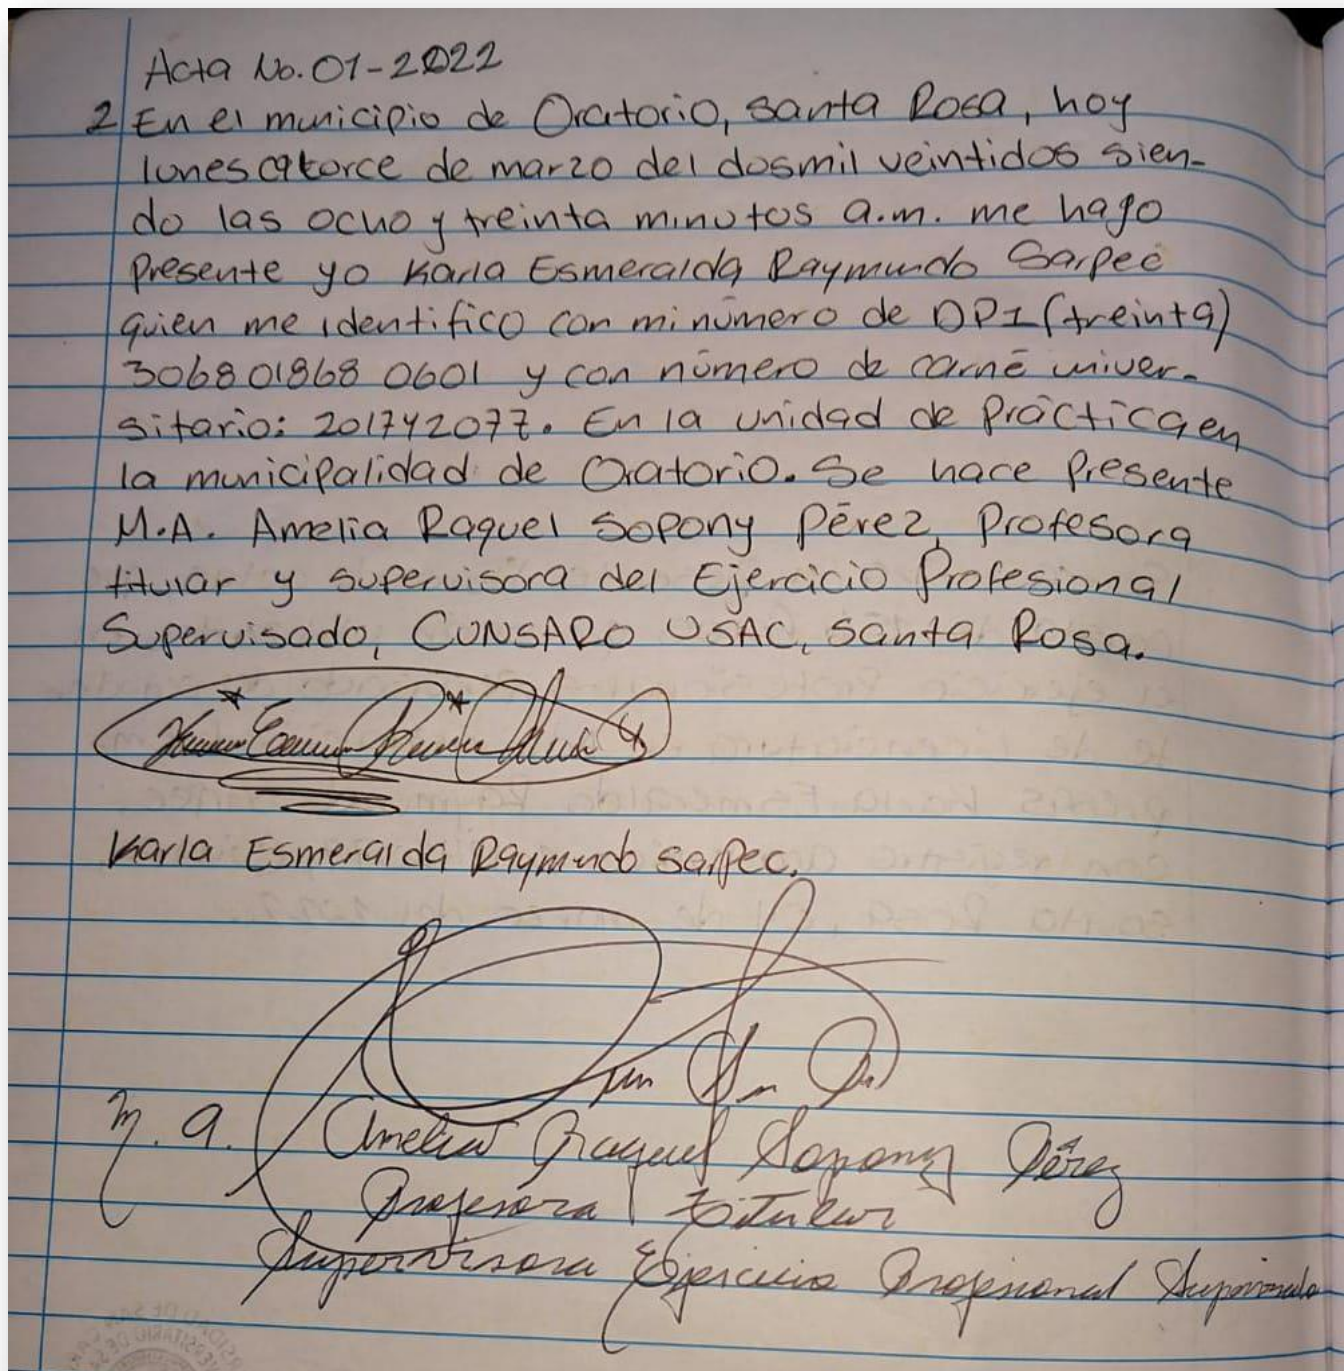 Acta No. 01-2022
2 En el municipio de Oratorio, santa Rosa, hoy
lunes catorce de marzo del dosmil veintidos sien-
do las ocho y treinta minutos a.m. me hago
Presente yo Karla Esmeralda Raymundo Sarpec
quien me identifico con mi número de DPI (treinta)
306801868 0601 y con número de carné univer-
sitario: 201742077. En la unidad de Práctica en
la municipalidad de Oratorio. Se hace Presente
M.A. Amelia Raquel Sopony Pérez, Profesora
titular y supervisora del Ejercicio Profesional
Supervisado, CUNSARO USAC, Santa Rosa.
Karla Esmeralda Raymundo Sarpec.
M.A. Amelia Raquel Sopony Pérez
Profesora Titular
Supervisora Ejercicio Profesional Supervisado